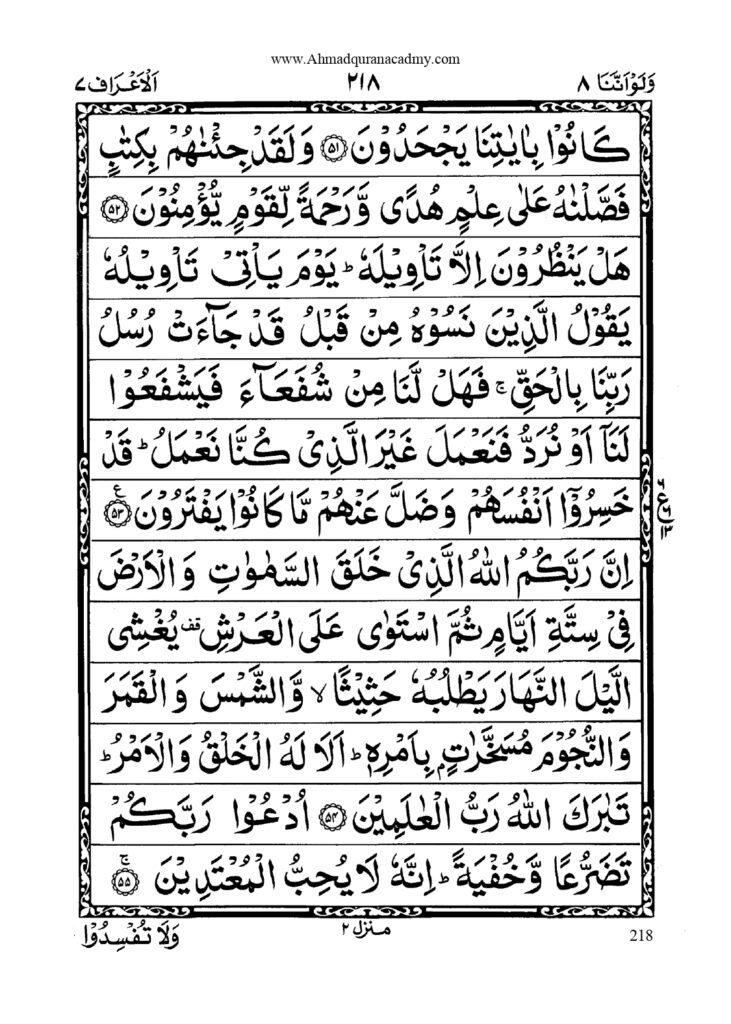 www.Ahmadquranacadmy.com
وَلَوْ اَنَّنَا ٨ ٢١٨ اَلْاَعْرَاف ٧
كَانُوْا بِاٰيٰتِنَا يَجْحَدُوْنَ ﴿۵۱﴾ وَلَقَدْ جِئْنٰهُمْ بِكِتٰبٍ
فَصَّلْنٰهُ عَلٰى عِلْمٍ هُدًى وَّرَحْمَةً لِّقَوْمٍ يُّؤْمِنُوْنَ ﴿۵۲﴾
هَلْ يَنْظُرُوْنَ اِلَّا تَاْوِيْلَهٗ ؕ يَوْمَ يَاْتِيْ تَاْوِيْلُهٗ
يَقُوْلُ الَّذِيْنَ نَسُوْهُ مِنْ قَبْلُ قَدْ جَآءَتْ رُسُلُ
رَبِّنَا بِالْحَقِّ ۚ فَهَلْ لَّنَا مِنْ شُفَعَآءَ فَيَشْفَعُوْا
لَنَاۤ اَوْ نُرَدُّ فَنَعْمَلَ غَيْرَ الَّذِيْ كُنَّا نَعْمَلُ ؕ قَدْ
خَسِرُوْۤا اَنْفُسَهُمْ وَضَلَّ عَنْهُمْ مَّا كَانُوْا يَفْتَرُوْنَ ﴿۵۳﴾ ع
اِنَّ رَبَّكُمُ اللّٰهُ الَّذِيْ خَلَقَ السَّمٰوٰتِ وَالْاَرْضَ
فِيْ سِتَّةِ اَيَّامٍ ثُمَّ اسْتَوٰى عَلَى الْعَرْشِ قف يُغْشِى
الَّيْلَ النَّهَارَ يَطْلُبُهٗ حَثِيْثًا ۙ وَّالشَّمْسَ وَالْقَمَرَ
وَالنُّجُوْمَ مُسَخَّرٰتٍۭ بِاَمْرِهٖ ؕ اَلَا لَهُ الْخَلْقُ وَالْاَمْرُ ؕ
تَبٰرَكَ اللّٰهُ رَبُّ الْعٰلَمِيْنَ ﴿۵۴﴾ اُدْعُوْا رَبَّكُمْ
تَضَرُّعًا وَّخُفْيَةً ؕ اِنَّهٗ لَا يُحِبُّ الْمُعْتَدِيْنَ ﴿۵۵﴾ ۚ
وَلَا تُفْسِدُوْا منزل ٢ 218